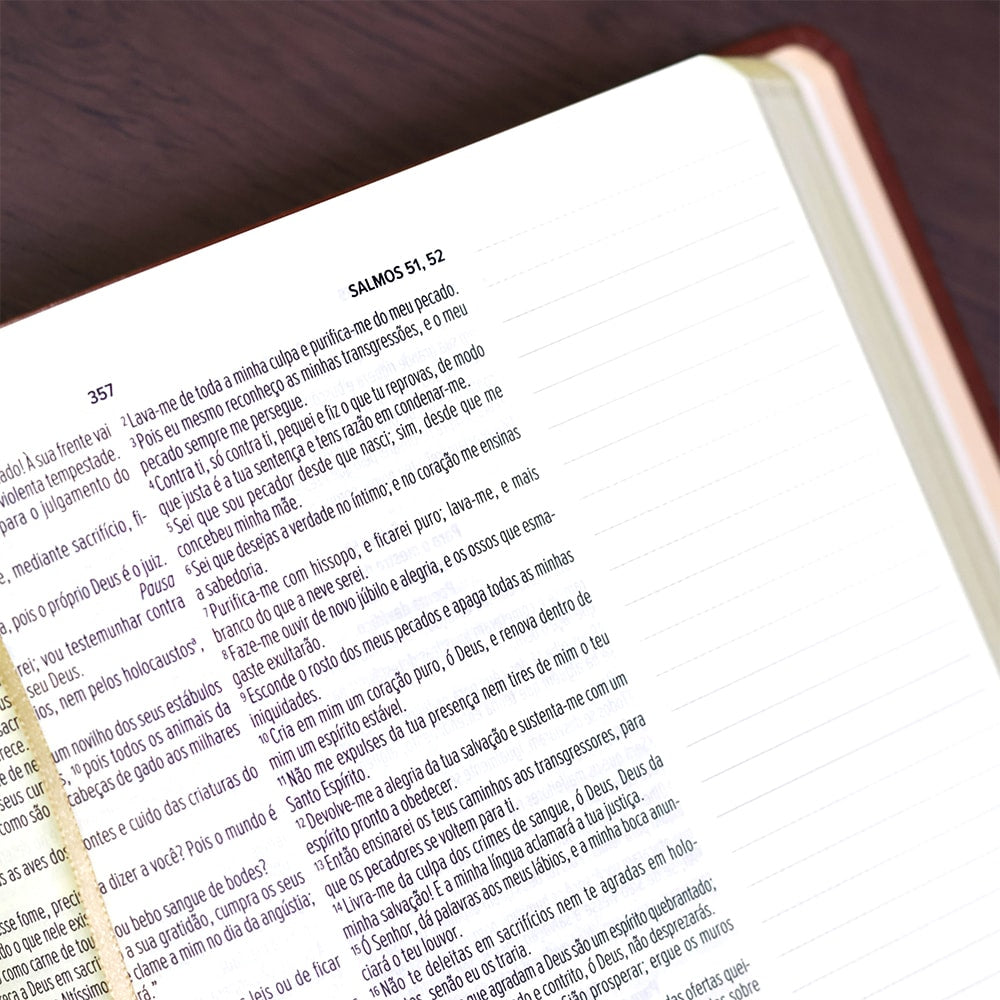 357
SALMOS 51, 52
ado! À sua frente vai
violenta tempestade.
para o julgamento do
mediante sacrifício, fi-
pois o próprio Deus é o juiz.
Pausa
rei; vou testemunhar contra
seu Deus.
nem pelos holocaustos
um novilho dos seus estábulos
¹⁰pois todos os animais da
cabeças de gado aos milhares
ontes e cuido das criaturas do
a dizer a você? Pois o mundo é
ou bebo sangue de bodes?
a sua gratidão, cumpra os seus
clame a mim no dia da angústia;
rá.”
leis ou de ficar
²Lava-me de toda a minha culpa e purifica-me do meu pecado.
³Pois eu mesmo reconheço as minhas transgressões, e o meu
pecado sempre me persegue.
⁴Contra ti, só contra ti, pequei e fiz o que tu reprovas, de modo
que justa é a tua sentença e tens razão em condenar-me.
⁵Sei que sou pecador desde que nasci; sim, desde que me
concebeu minha mãe.
⁶Sei que desejas a verdade no íntimo; e no coração me ensinas
a sabedoria.
⁷Purifica-me com hissopo, e ficarei puro; lava-me, e mais
branco do que a neve serei.
⁸Faze-me ouvir de novo júbilo e alegria, e os ossos que esma-
gaste exultarão.
⁹Esconde o rosto dos meus pecados e apaga todas as minhas
iniquidades.
¹⁰Cria em mim um coração puro, ó Deus, e renova dentro de
mim um espírito estável.
¹¹Não me expulses da tua presença nem tires de mim o teu
Santo Espírito.
¹²Devolve-me a alegria da tua salvação e sustenta-me com um
espírito pronto a obedecer.
¹³Então ensinarei os teus caminhos aos transgressores, para
que os pecadores se voltem para ti.
¹⁴Livra-me da culpa dos crimes de sangue, ó Deus, Deus da
minha salvação! E a minha língua aclamará a tua justiça.
¹⁵Ó Senhor, dá palavras aos meus lábios, e a minha boca anun-
ciará o teu louvor.
¹⁶Não te deleitas em sacrifícios nem te agradas em holo-
senão eu os traria.
que agradam a Deus são um espírito quebrantado;
e contrito, ó Deus, não desprezarás.
prosperar; ergue os muros
das ofertas quei-
sobre